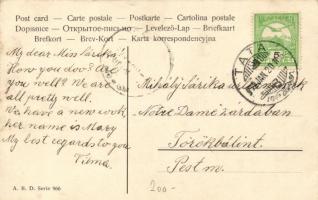 Post card — Carte postale — Postkarte — Cartolina postale
Dopisnice — Открытое письмо — Levelező-Lap — Briefkaart
Brefkort — Brev-Kort — Karta korrespondencyjna
TATA
My dear Miss Sárika
How you doo? Are
you well? We are
all pretty well.
We have a new cook
her name is Mary
My best regards to you
Vilma.
Mihályi Sárika
Notre Dame zárdában
Törökbálint.
Pest m.
A. B. D. Serie 966
200-